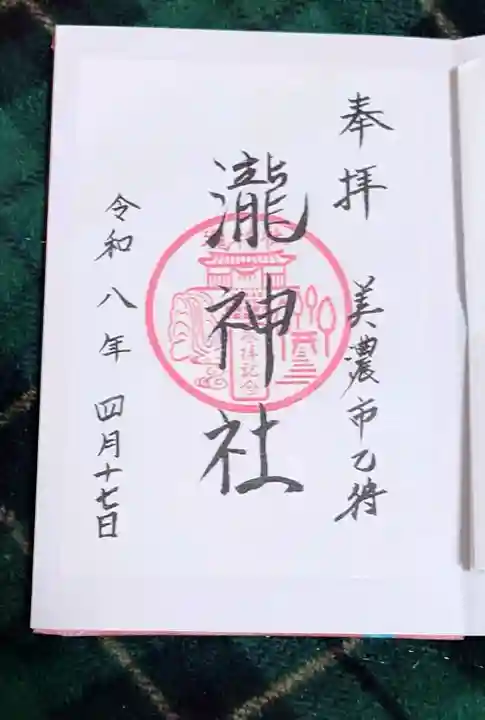 奉拝
美濃市乙狩
瀧神社
参拝記念
令和八年 四月十七日